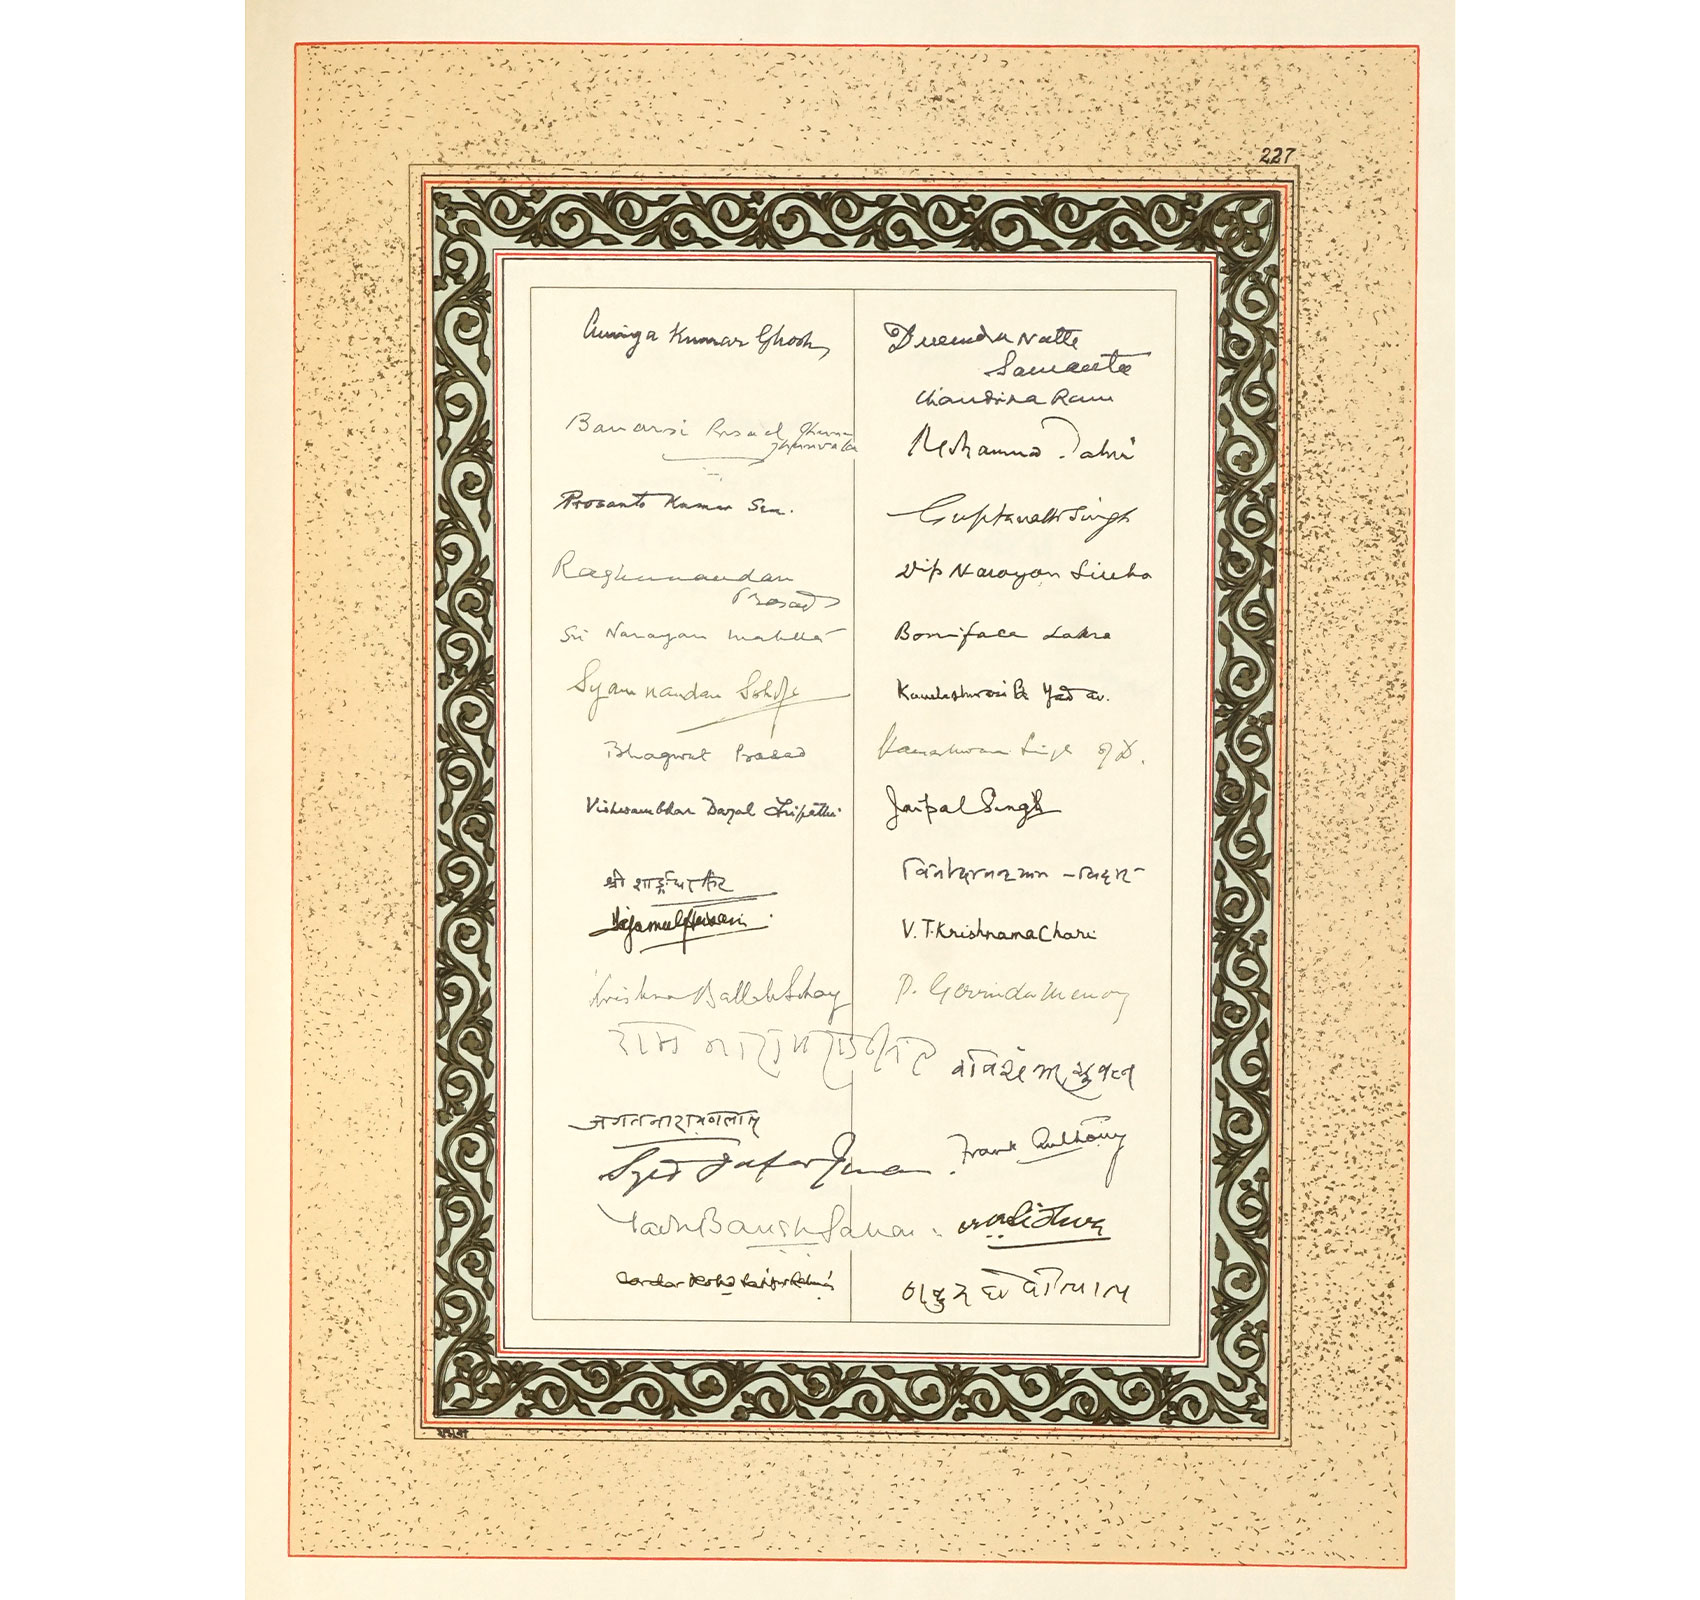 227
Amiya Kumar Ghosh
Banarsi Prasad Jhunjhunwala
Prosanto Kumar Sen.
Raghunandan
Prasad
Sri Narayan Mahtha
Syamnandan Sahaya
Bhagwat Prasad
Vishwambhar Dayal Tripathi
श्री
Tajamul Husain
Krishna Ballabh Sahay
राम नारायण
जगतनारायणलाल
Syed Jafar Imam
Yadubans Sahai
Devendra Nath
Samanta
Chandrika Ram
Mohammad Tahir
Guptanath Singh
Dip Narayan Sinha
Boniface Lakra
Kamleshwari Pd Yadav.
Kameshwara Singh of D.
Jaipal Singh
V. T. Krishnamachari
P. Govinda Menon
रविशंकर शुक्ल
Frank Anthony
ठाकुर छेदीलाल